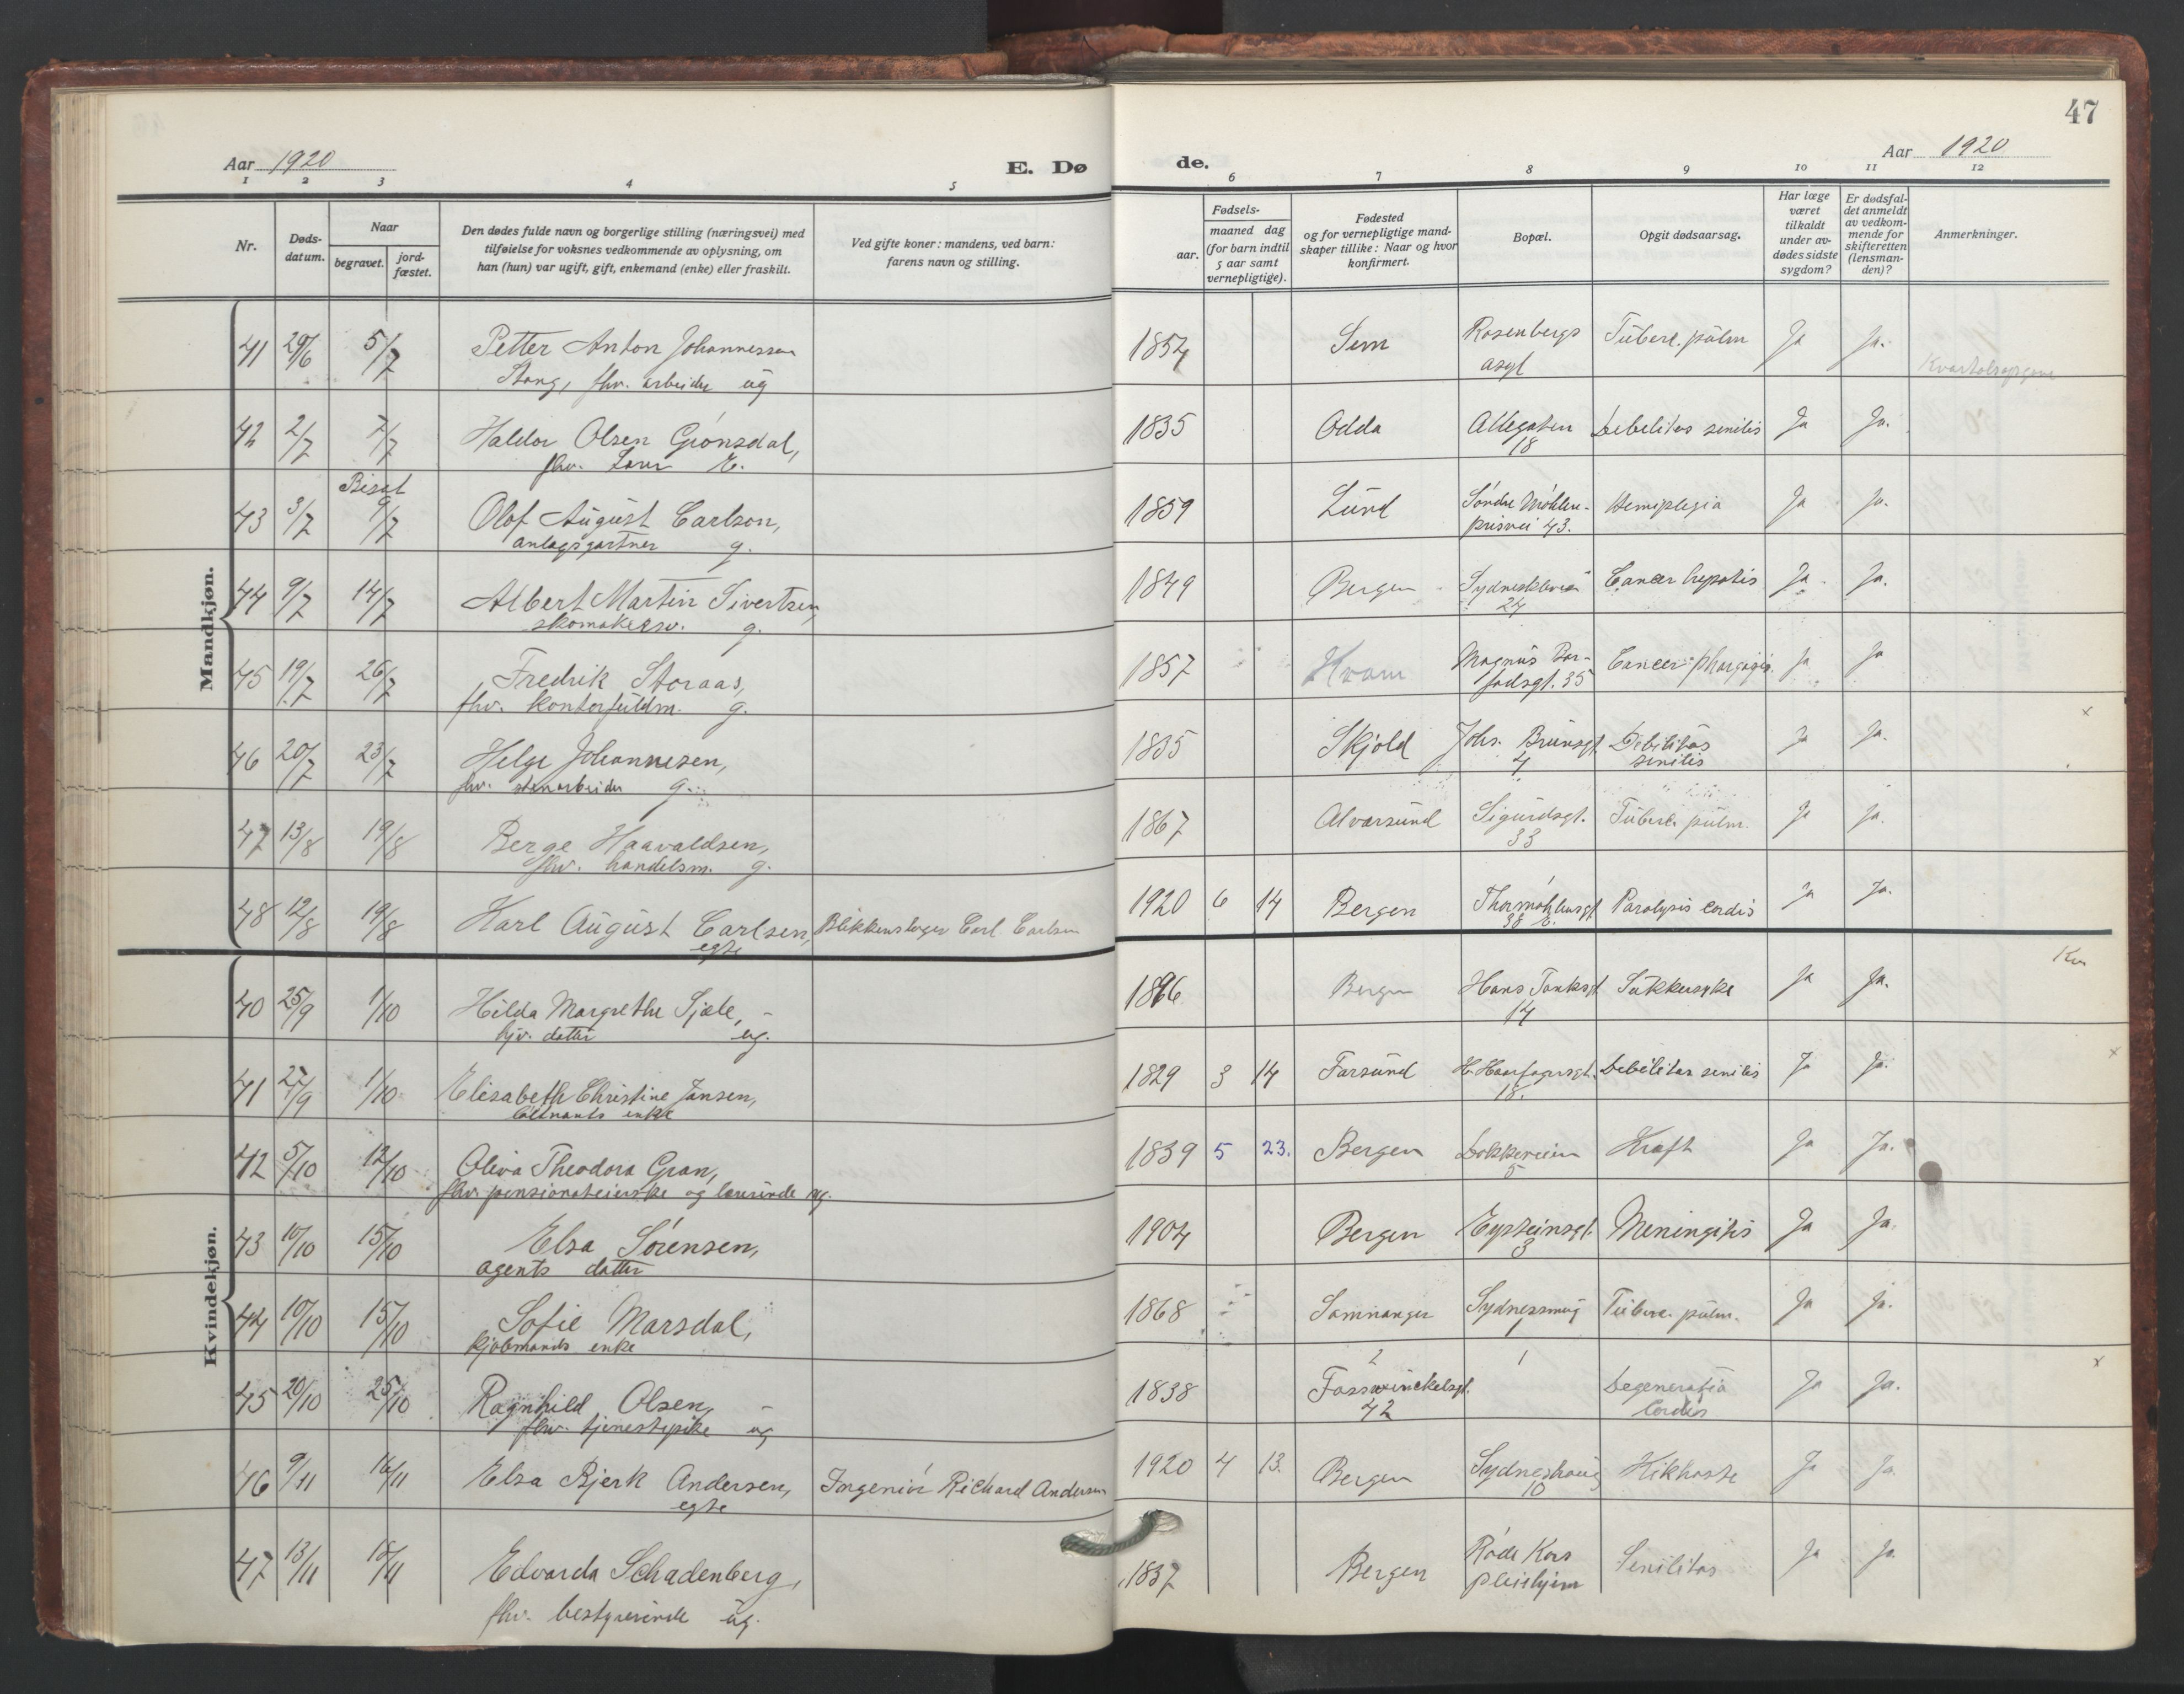 47
Aar 1920
E. Døde.
Aar 1920
1 2 3 4 5 6 7 8 9 10 11 12
Nr.
Døds-
datum.
Naar
begravet.
jord-
fæstet.
Den dødes fulde navn og borgerlige stilling (næringsvei) med
tilføielse for voksnes vedkommende av oplysning, om
han (hun) var ugift, gift, enkemand (enke) eller fraskilt.
Ved gifte koner: mandens, ved barn:
farens navn og stilling.
Fødsels-
aar.
maaned dag
(for barn indtil
5 aar samt
vernepligtige).
Fødested
og for vernepligtige mand-
skaper tillike: Naar og hvor
konfirmert.
Bopæl.
Opgit dødsaarsag.
Har læge
været
tilkaldt
under av-
dødes sidste
sygdom?
Er dødsfal-
det anmeldt
av vedkom-
mende for
skifteretten
(lensman-
den)?
Anmerkninger.
Mandkjøn.
41 29/6 5/7 Petter Anton Johannessen 1854 Sem Rosenbergs Tuberc. pulm Ja Ja.
Stang, fhv. arbeider ug asyl Kvartalsopgave
42 2/7 7/7 Haldor Olsen Grönsdal, 1835 Odda Allegaten Debilitas senilis Ja Ja.
fhv. E. 18
Bisat
43 3/7 9/7 Olof August Carlson, 1859 Lund Söndre Möhlen- Hemiplegia Ja Ja.
anlægsgartner g. prisvei 43.
44 9/7 14/7 Albert Martin Sivertsen, 1849 Bergen Sydneskleven Cancer hepatis Ja Ja.
skomakersv. g. 24
45 19/7 26/7 Fredrik Storaas, 1857 Kvam Magnus Bar- Cancer Ja Ja
fhv. kontorfuldm. g. fodsgt. 35
46 20/7 23/7 Helge Johannesen, 1835 Skjold Johs. Brunsgt. Debilitas Ja Ja. x
fhv. stenarbeider g. 4 senilis
47 13/8 19/8 Berge Haavaldsen, 1867 Alvarsund Sigurdsgt. Tuberc. pulm. Ja Ja.
fhv. handelsm. g. 33
48 12/8 19/8 Karl August Carlsen, Blikkenslager Carl Carlsen 1920 6 14 Bergen Thormöhlensgt. Paralysis cordis Ja Ja.
egte 38
Kvindekjøn.
40 25/9 1/10 Hilda Margrethe Sjæle, 1896 Bergen Hans Tanksgt. Sukkersyke Ja Ja. Kv
datter ug. 14
41 27/9 1/10 Elisabeth Christine Jansen, 1829 3 14 Farsund H. Haarfagersgt. Debilitas senilis Ja Ja. x
enke 18.
42 5/10 12/10 Oliva Theodora Gran, 1839 5 23. Bergen Dokkeveien Kraft Ja Ja.
fhv. pensionateierske og lærerinde ug. 5
43 10/10 15/10 Elsa Sörensen, 1904 Bergen Eysteinsgt. Meningitis Ja Ja.
agents datter 3
44 10/10 15/10 Sofie Marsdal, 1868 Samnanger Sydnessmug Tuberc. pulm. Ja Ja.
kjøbmands enke 1
45 20/10 25/10 Ragnhild Olsen, 1838 Fosswinckelsgt. Degeneratio Ja Ja. x
fhv. tjenestepike ug 42 Cordis
46 9/11 16/11 Elsa Bjerk Andersen, Ingeniör Richard Andersen 1920 4 13. Bergen Sydneshaug Kikhoste Ja Ja
egte 10
47 13/11 18/11 Edvarda Schadenberg, 1837 Bergen Röde Kors Senilitas Ja Ja
fhv. bestyrerinde ug. pleiehjem